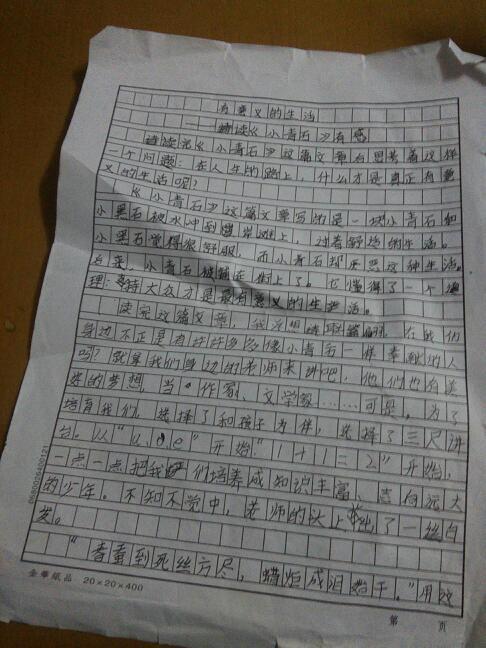 有意义的生活
——读《小青石》有感
读完《小青石》这篇文章后思考着这样
一个问题:在人生的路上,什么才是真正有意
义的生活呢?
《小青石》这篇文章写的是一块小青石和
小黑石被水冲到岸滩上,过着舒适的生活。
小黑石觉得很舒服,而小青石却厌恶这种生活。
后来,小青石被铺在街上了。它懂得了一个道
理:为大众才是最有意义的生活。
读完这篇文章,我浮想联翩。在我们
身边不正是有许许多多像小青石一样奉献的人
吗?就拿我们身边的老师来讲吧,他们也有美
好的梦想,当“作家、文学家……可是,为了
培育我们,选择了和孩子为伴,选择了三尺讲
台。从“a、o、e”开始,“1+1=2”开始,
一点一点把我们培养成知识丰富、志向远大
的少年。不知不觉中,老师的头上了一丝白
发。
“春蚕到死丝方尽,蜡炬成泪始干。”用这
金华纸品 20×20=400
第 页